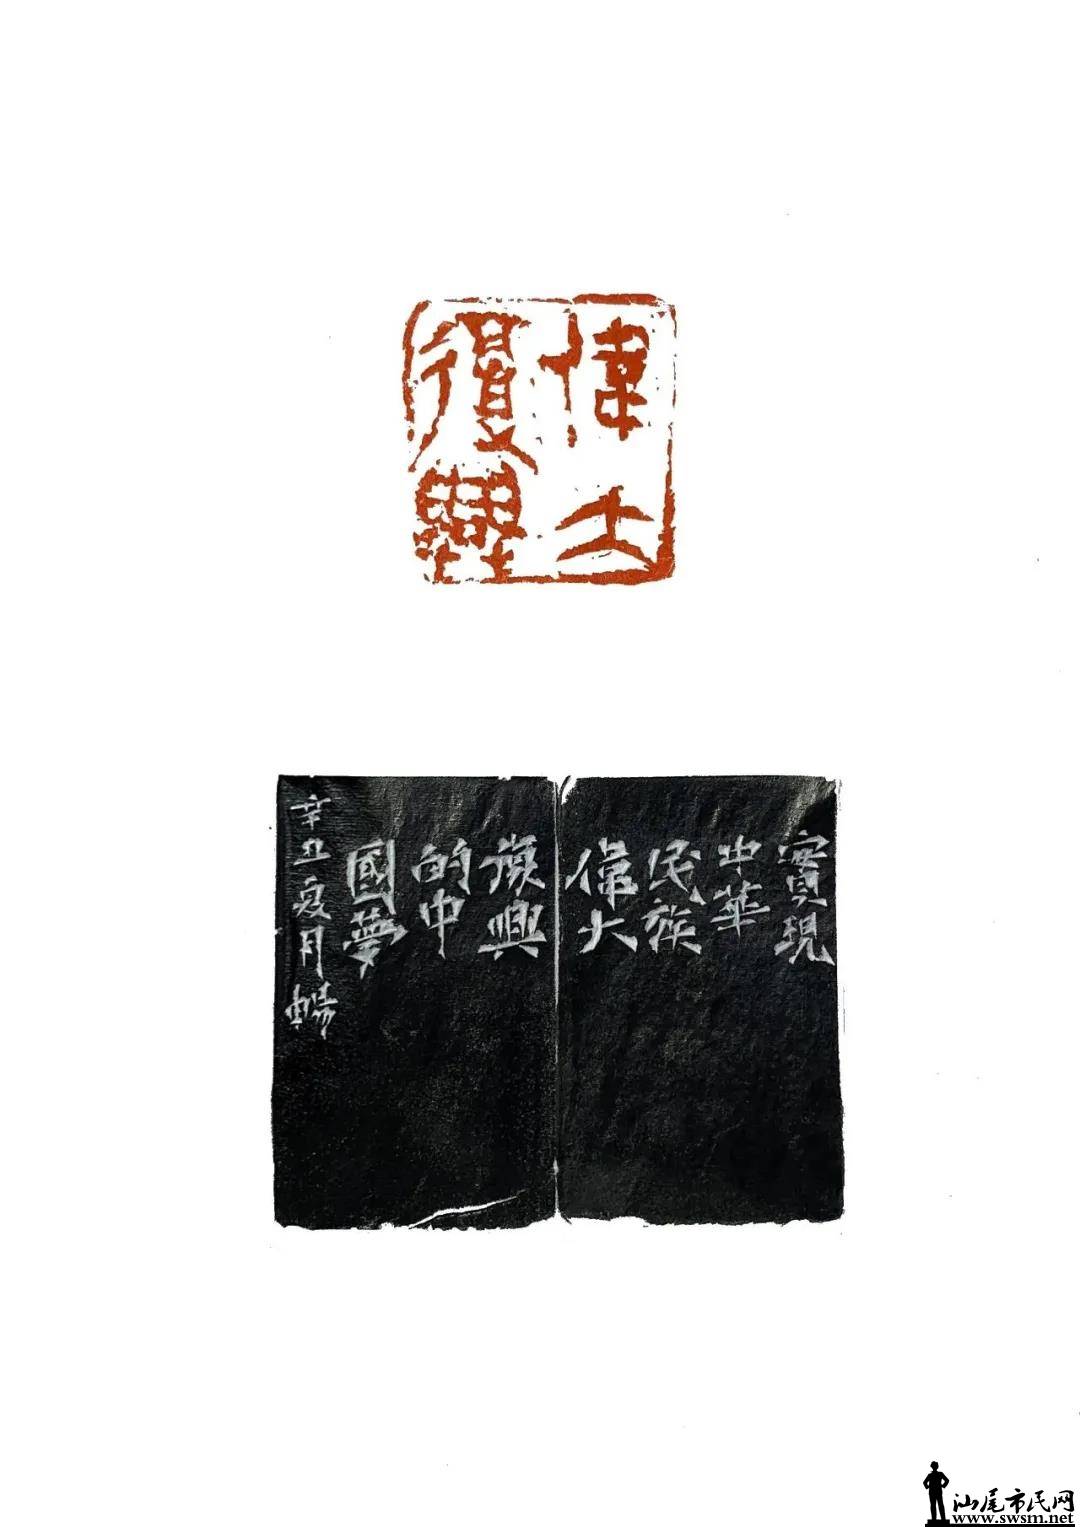 偉大
復興
實現
中華
民族
偉大
復興
的中
國夢
辛丑夏月暢
汕尾市民网
www.swsm.net